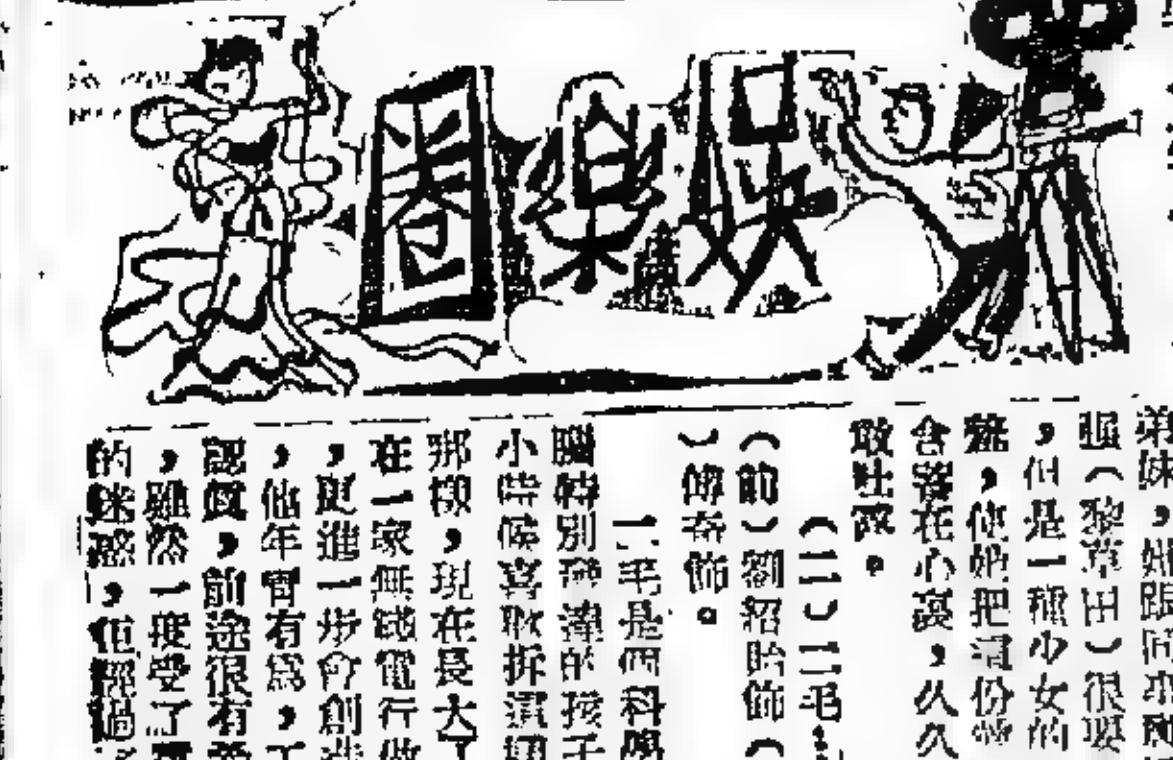 娛樂圈
弟妹，她跟
（黎草田）很要
，但是一種少女的
，使她把這份
含蓄在心裏，久久
敢吐露。
（二）二毛
（前）劉紹貽飾（
）傅奇飾。
二毛是個科學
腦特別發達的孩子
小時候喜歡拆這
那樣，現在長大了
在一家無綫電行做
，更進一步會創造
，他年青有爲，工
認真，前途很有
，雖然一度受了
的迷惑，但經過